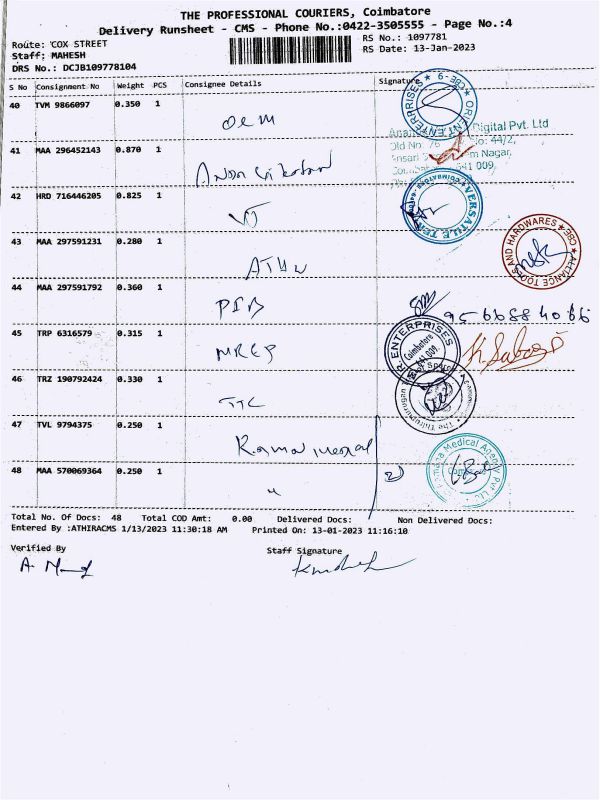 THE PROFESSIONAL COURIERS, Coimbatore
Delivery Runsheet - CMS - Phone No.:0422-3505555 - Page No.:4
Route: 'COX STREET
Staff: MAHESH
DRS No.: DCJB109778104
RS No.: 1097781
RS Date: 13-Jan-2023
S No Consignment No Weight PCS Consignee Details Signature
40 TVM 9866097 0.350 1
ORIENT ENTERPRISES ★ CBE-9 ★
Digital Pvt. Ltd
Old No: 76 No: 44/2,
Nagar,
641 009.
41 MAA 296452143 0.870 1
42 HRD 716446205 0.825 1
VERSATILE
43 MAA 297591231 0.280 1
ALLIANCE TOOLS AND HARDWARES ★ CBE ★
44 MAA 297591792 0.360 1
PIB
9566884066
M.R. ENTERPRISES
Coimbatore
641 009.
45 TRP 6316579 0.315 1
MREP
46 TRZ 190792424 0.330 1
TTC
47 TVL 9794375 0.250 1
Medical Agency Pvt Ltd
48 MAA 570069364 0.250 1
"
Total No. Of Docs: 48 Total COD Amt: 0.00 Delivered Docs: Non Delivered Docs:
Entered By :ATHIRACMS 1/13/2023 11:30:18 AM Printed On: 13-01-2023 11:16:10
Verified By
Staff Signature